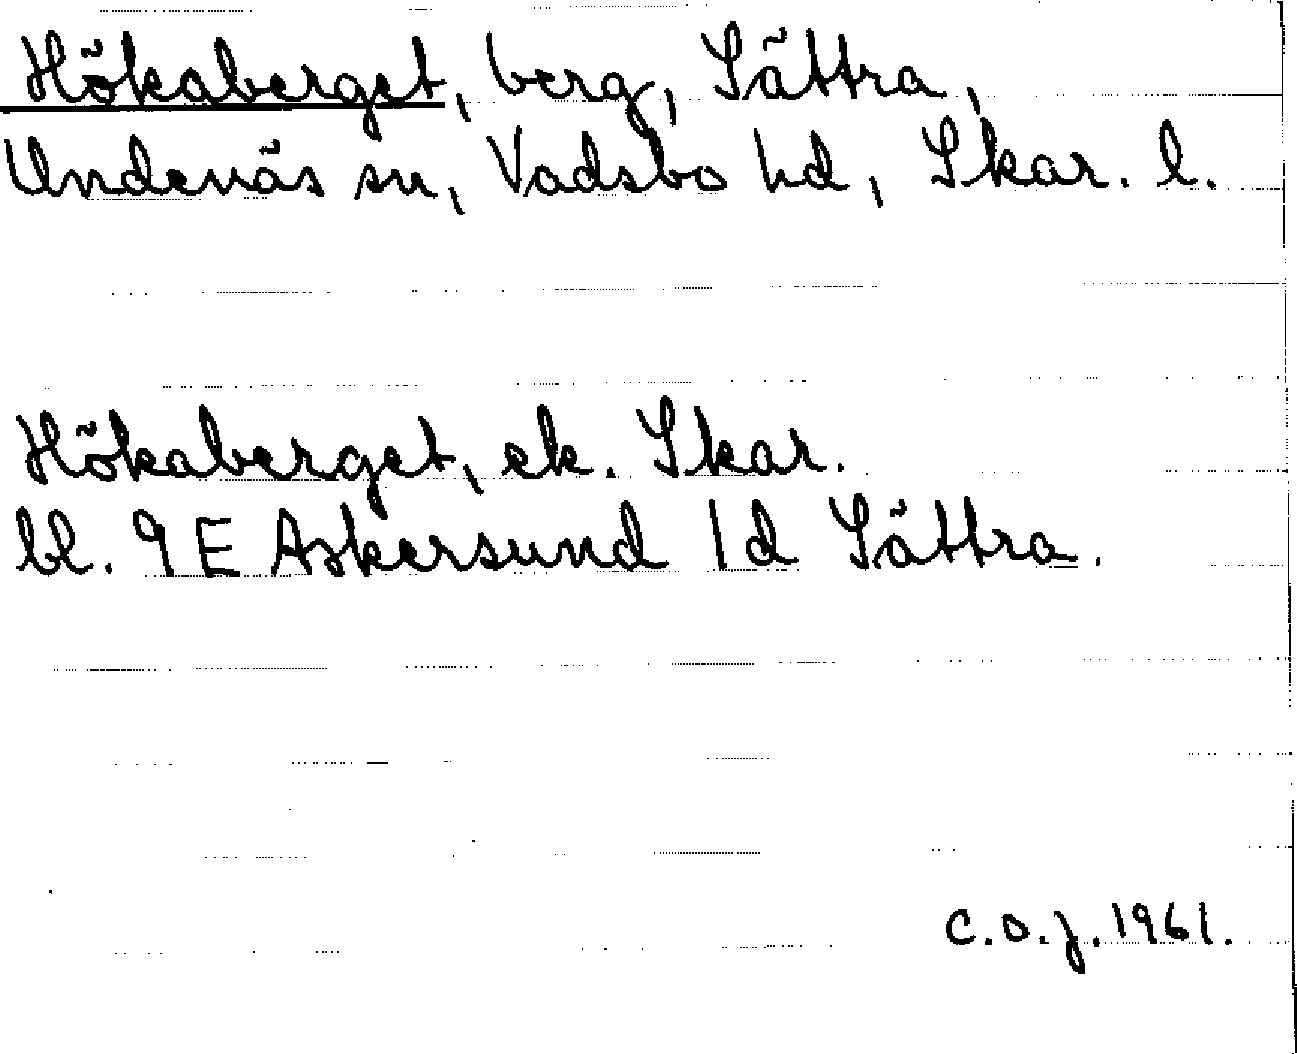 Hökaberget, berg, Sättra,
Undenäs sn, Vadsbo hd, Skar. l.
Hökaberget, ek. Skar.
bl. 9 E Askersund 1 d Sättra.
C.O.J. 1961.